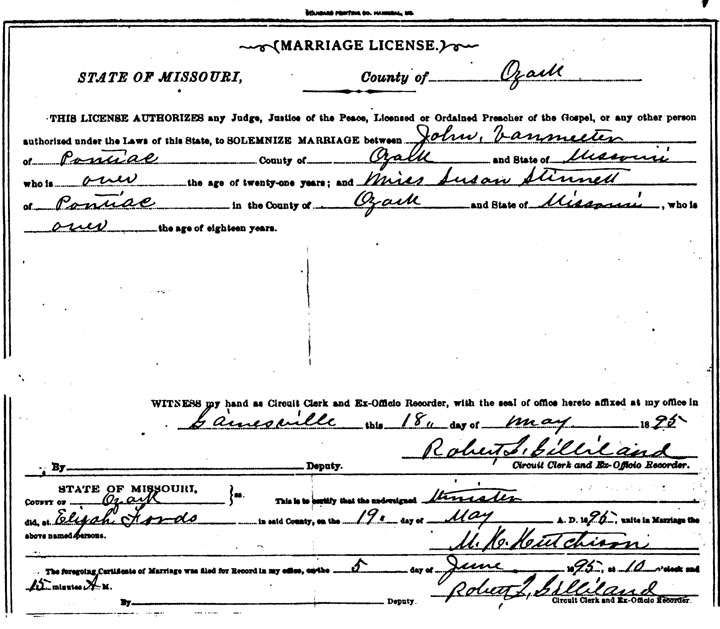 STANDARD PRINTING CO. HANNIBAL, MO.
(MARRIAGE LICENSE.)
STATE OF MISSOURI, County of Ozark
THIS LICENSE AUTHORIZES any Judge, Justice of the Peace, Licensed or Ordained Preacher of the Gospel, or any other person
authorized under the Laws of this State, to SOLEMNIZE MARRIAGE between John, Vanmeeten
of Pontiac County of Ozark and State of Missouri
who is over the age of twenty-one years; and Miss Susan Stinnett
of Pontiac in the County of Ozark and State of Missouri, who is
over the age of eighteen years.
WITNESS my hand as Circuit Clerk and Ex-Officio Recorder, with the seal of office hereto affixed at my office in
Gainesville this 18 day of May 1895
Robert L. Gilliland
By Deputy. Circuit Clerk and Ex-Officio Recorder.
STATE OF MISSOURI,
COUNTY OF Ozark } ss. This is to certify that the undersigned Minister
did, at Elijah Fords in said County, on the 19 day of May A. D. 1895, unite in Marriage the
above named persons. M. H. Hutchison
The foregoing Certificate of Marriage was filed for Record in my office, on the 5 day of June 1895, at 10 o'clock and
15 minutes A M. Robert L. Gilliland
By Deputy. Circuit Clerk and Ex-Officio Recorder.